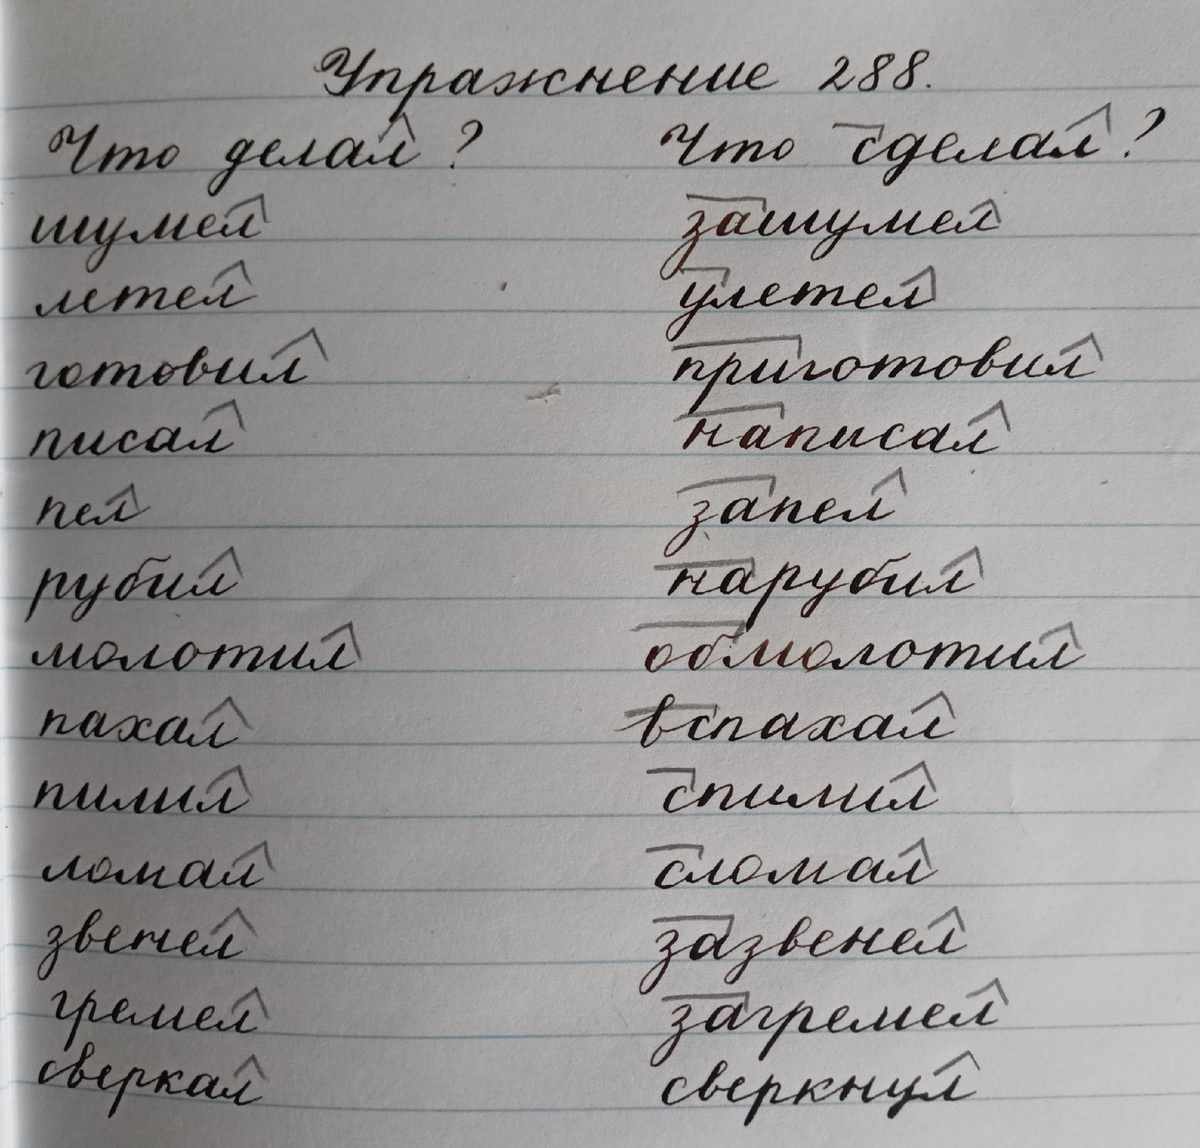 Упражнение 288.
Что делал? Что сделал?
шумел зашумел
летел улетел
готовил приготовил
писал написал
пел запел
рубил нарубил
молотил обмолотил
пахал вспахал
пилил спилил
ломал сломал
звенел зазвенел
гремел загремел
сверкал сверкнул